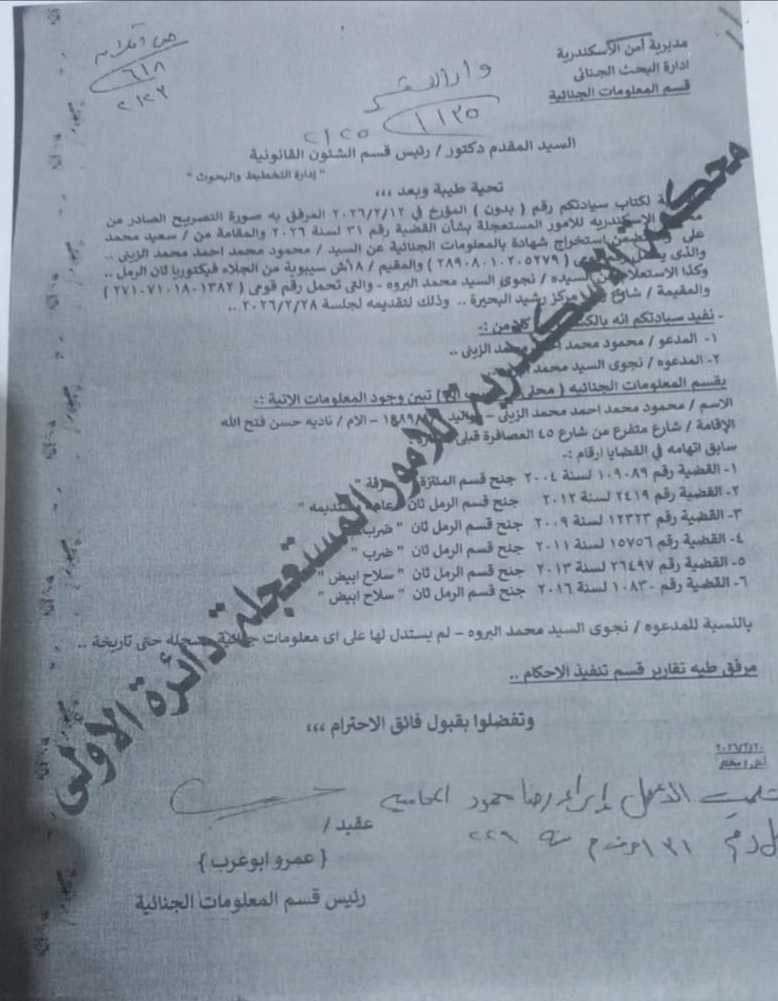 مديرية أمن الأسكندرية
ادارة البحث الجنائى
قسم المعلومات الجنائية
٦١٨
٢٠٢٣
١١٣٥
٢٠٢٥
السيد المقدم دكتور / رئيس قسم الشئون القانونية
" إدارة التخطيط والبحوث "
تحية طيبة وبعد ،،،
لكتاب سيادتكم رقم ( بدون ) المؤرخ في ٢٠٢٦/٢/١٢ المرفق به صورة التصريح الصادر من
الإسكندريه للأمور المستعجلة بشأن القضية رقم ٣١ لسنة ٢٠٢٦ والمقامة من / سعيد محمد
على استخراج شهادة بالمعلومات الجنائية عن السيد / محمود محمد احمد محمد الزينى ..
والذى ( ٢٨٩٠٨٠١٠٢٠٥٢٧٩ ) والمقيم / ١٨ش سيبوية من الجلاء فيكتوريا ثان الرمل ..
وكذا الاستعلام السيده / نجوى السيد محمد البروه - والتى تحمل رقم قومى ( ٢٧١٠٧١٠١٨٠١٣٨٢ )
والمقيمة / شارع مركز رشيد البحيرة .. وذلك لتقديمه لجلسة ٢٠٢٦/٢/٢٨ ..
- نفيد سيادتكم انه بالكشف من :-
١- المدعو / محمود محمد احمد محمد الزينى ..
٢- المدعوه / نجوى السيد محمد
بقسم المعلومات الجنائيه ( محلى ) تبين وجود المعلومات الاتية :-
الاسم / محمود محمد احمد محمد الزينى - - الام / ناديه حسن فتح الله
الإقامة / شارع متفرع من شارع ٤٥ العصافرة قبلى
سابق اتهامه في القضايا ارقام :-
١- القضية رقم ١٠٩٠٨٩ لسنة ٢٠٠٤ جنح قسم المنتزة
٢- القضية رقم ٢٤١٩ لسنة ٢٠١٢ جنح قسم الرمل ثان
٣- القضية رقم ١٢٣٢٣ لسنة ٢٠٠٩ جنح قسم الرمل ثان " ضرب "
٤- القضية رقم ١٥٧٥٦ لسنة ٢٠١١ جنح قسم الرمل ثان " ضرب "
٥- القضية رقم ٢٦٤٩٧ لسنة ٢٠١٣ جنح قسم الرمل ثان " سلاح ابيض "
٦- القضية رقم ١٠٨٣٠ لسنة ٢٠١٦ جنح قسم الرمل ثان " سلاح ابيض "
بالنسبة للمدعوه / نجوى السيد محمد البروه - لم يستدل لها على اى معلومات جنائية مسجله حتى تاريخة ..
مرفق طيه تقارير قسم تنفيذ الاحكام ..
وتفضلوا بقبول فائق الاحترام ،،،
محكمة الإسكندرية للأمور المستعجلة دائرة الاولى
عقيد /
{ عمرو ابوغرب }
رئيس قسم المعلومات الجنائية